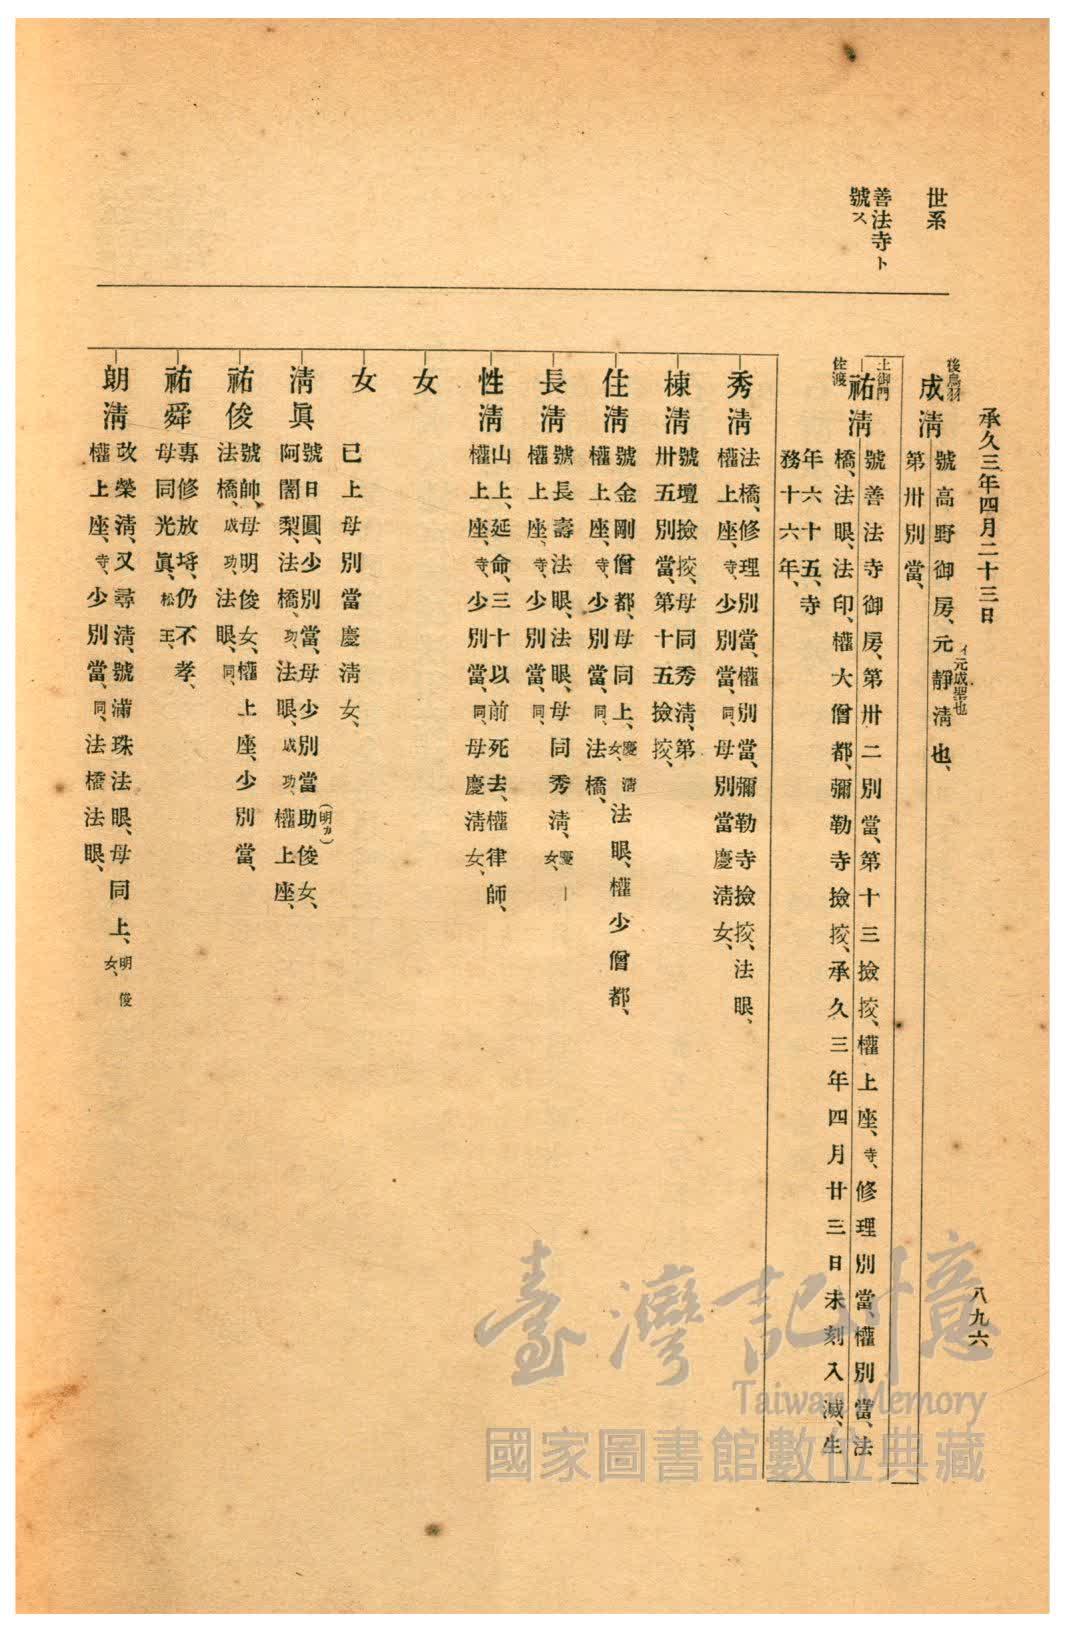 承久三年四月二十三日
八九六
世系
善法寺ト
號ス
後鳥羽
成淸
號高野御房、元靜淸也、
イ元成聖也
第卅別當、
土御門
佐渡
祐淸
號善法寺御房、第卅二別當、第十三撿挍、權上座、寺、修理別當、權別當、法
橋、法眼、法印、權大僧都、彌勒寺撿挍、承久三年四月廿三日未刻入滅、生
年六十五、寺
務十六年、
秀淸
法橋、修理別當、權別當、彌勒寺撿挍、法眼、
權上座、寺、少別當、同、母別當慶淸女、
棟淸
號壇撿挍、母同秀淸、第
卅五別當、第十五撿挍、
住淸
號金剛僧都、母同上、慶淸女、法眼、權少僧都、
權上座、寺、少別當、同、法橋、
長淸
號長壽法眼、法眼、母同秀淸、慶—女、
權上座、寺、少別當、同、
性淸
山上、延命、三十以前死去、權律師、
權上座、寺、少別當、同、母慶淸女、
女
女
已上母別當慶淸女、
淸眞
號日圓、少別當、母少別當助俊女、
(明カ)
阿闍梨、法橋、功、法眼、成功、權上座、
祐俊
號帥、母明俊女、權上座、少別當、
法橋、成功、法眼、同、
祐舜
專修放埓、仍不孝、
母同光眞、松王、
朗淸
改榮淸、又尋淸、號浦珠法眼、母同上、明俊女、
權上座、寺、少別當、同、法橋、法眼、
臺灣記憶
Taiwan Memory
國家圖書館數位典藏